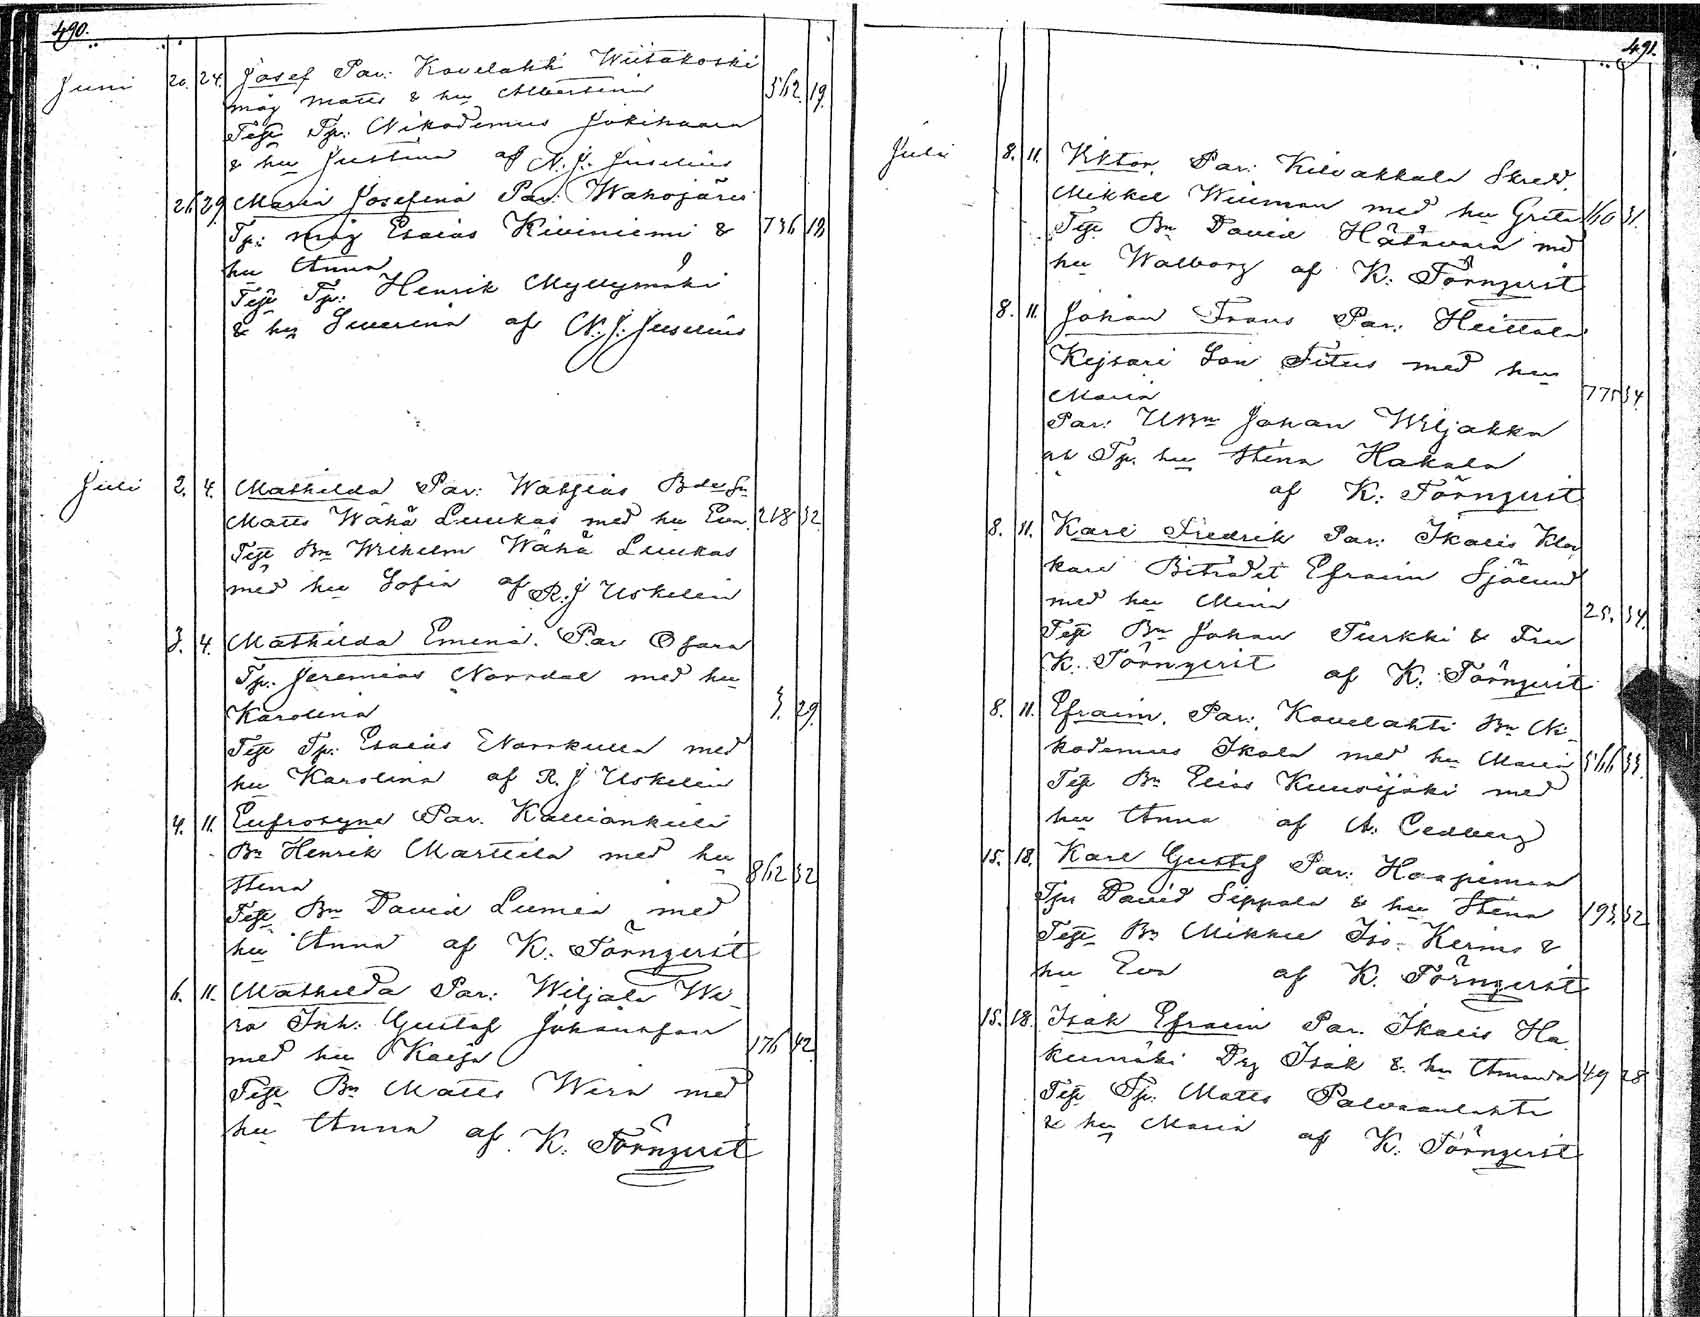 490.
Juni 20. 24. Josef Par: Kovelahti Wiitakoski
måg Matts & hu Albertina 562. 19.
Test Tp: Nikodemus Jokihaara
& hu Justina af N. J. Juselius
26 29. Maria Josefina Par: Wahojärvi
Tp: måg Esaias Kiviniemi & 736 18
hu Anna
Test Tp: Henrik Myllymäki
& hu Severina af N. J. Juselius
Juli 2. 4. Mathilda Par: Watsias Bde Sn
Matts Wähä Luukas med hu Eva 218 32
Test Bn Wilhelm Wähä Luukas
med hu Sofia af R. J Uskelin
3. 4. Mathilda Emena. Par Osara
Tp: Jeremias Norrdal med hu
Karolina 3. 29.
Test Tp: Esaias Norrkulla med
hu Karolina af R. J Uskelin
4. 11. Eufrosyne Par. Kallionkieli
Bn Henrik Marttila med hu
Stena 862 32
Test Bn David Lumia med
hu Anna af K. Törnqvist
6. 11. Mathilda Par: Wiljala Wi-
ra Inh: Gustaf Johansson
med hu Kaisa 176 42
Test Bn Matts Wira med
hu Anna af K. Törnqvist
491.
Juli 8. 11. Viktor, Par: Kilvakkala Skredd.
Mikkel Wiiman med hu Greta 160 31.
Test Bn David Hätävara med
hu Walborg af K: Törnqvist
8. 11. Johan Frans Par: Heittola
Kejsari Son Titus med hu
Maria 775 34.
Par: UBn Johan Wiljakka
Tp. hu Stina Hakala
af K: Törnqvist
8. 11. Karl Fredrik Par: Ikalis Kloc
kare Biträdet Efraim Sjölund
med hu Mina 25. 34.
Test Bn Johan Turkki & Fru
K. Törnqvist af K. Törnqvist
8. 11. Efraim, Par: Kovelahti Bn Ni-
kodemus Ikola med hu Maria 566 33.
Test Bn Elias Kuusijoki med
hu Anna af A. Cedberg
15. 18. Karl Gustaf Par: Haapimaa
Tpr David Sippola & hu Stina 193. 32
Test Bn Mikkel Iso-Kerms &
hu Eva af K. Törnqvist
15. 18. Isak Efraim Par. Ikalis Ha
kumäki Drg Isak & hu Amanda 49 28
Test Tp: Matts Palvaanlahti
& hu Maria af K. Törnqvist